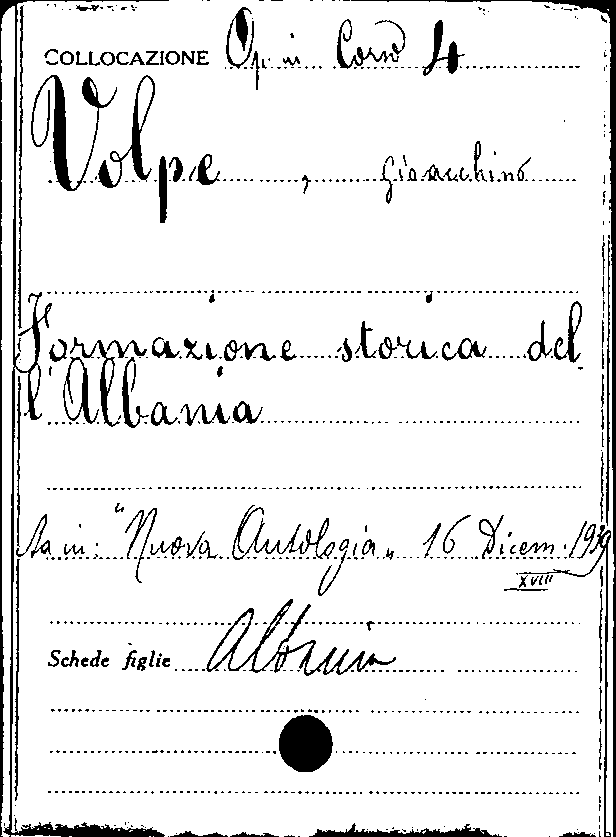 COLLOCAZIONE Op. in Corso 4
Volpe, Gioacchino
Formazione storica del
l'Albania
Sta in: "Nuova Antologia" 16 Dicem. 1939
XVIII
Schede figlie Albania